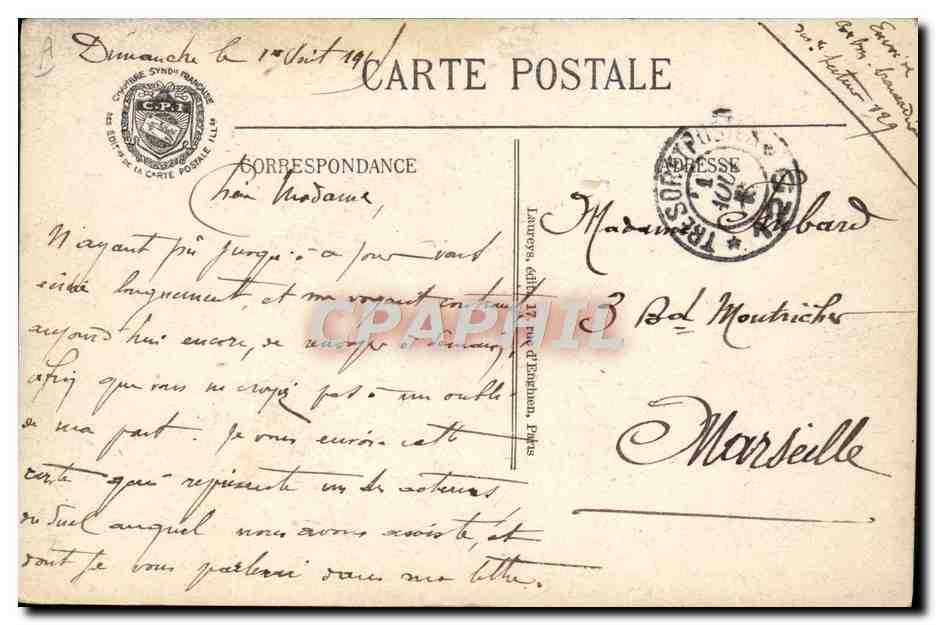 Dimanche le 1er Août 19
CARTE POSTALE
CHAMBRE SYNDle FRANÇAISE
C.P.I
DES EDITrs DE LA CARTE POSTALE ILLée
CORRESPONDANCE
ADRESSE
TRESOR ET POSTES
1
AOU
Chère Madame,
N'ayant pu jusqu'à ce jour vous
écrire longuement, et me voyant contraint
aujourd'hui encore, de renvoyer à demain,
afin que vous ne croyiez pas à un oubli
de ma part. Je vous envoie cette
carte qui représente un des acteurs
du Duel auquel nous avons assisté, et
dont je vous parlerai dans ma lettre.
Laureys, édit., 17, rue d'Enghien, Paris
Madame Aubard
3 Bd Montricher
Marseille
Envoi de
secteur 129
CPAPHIL